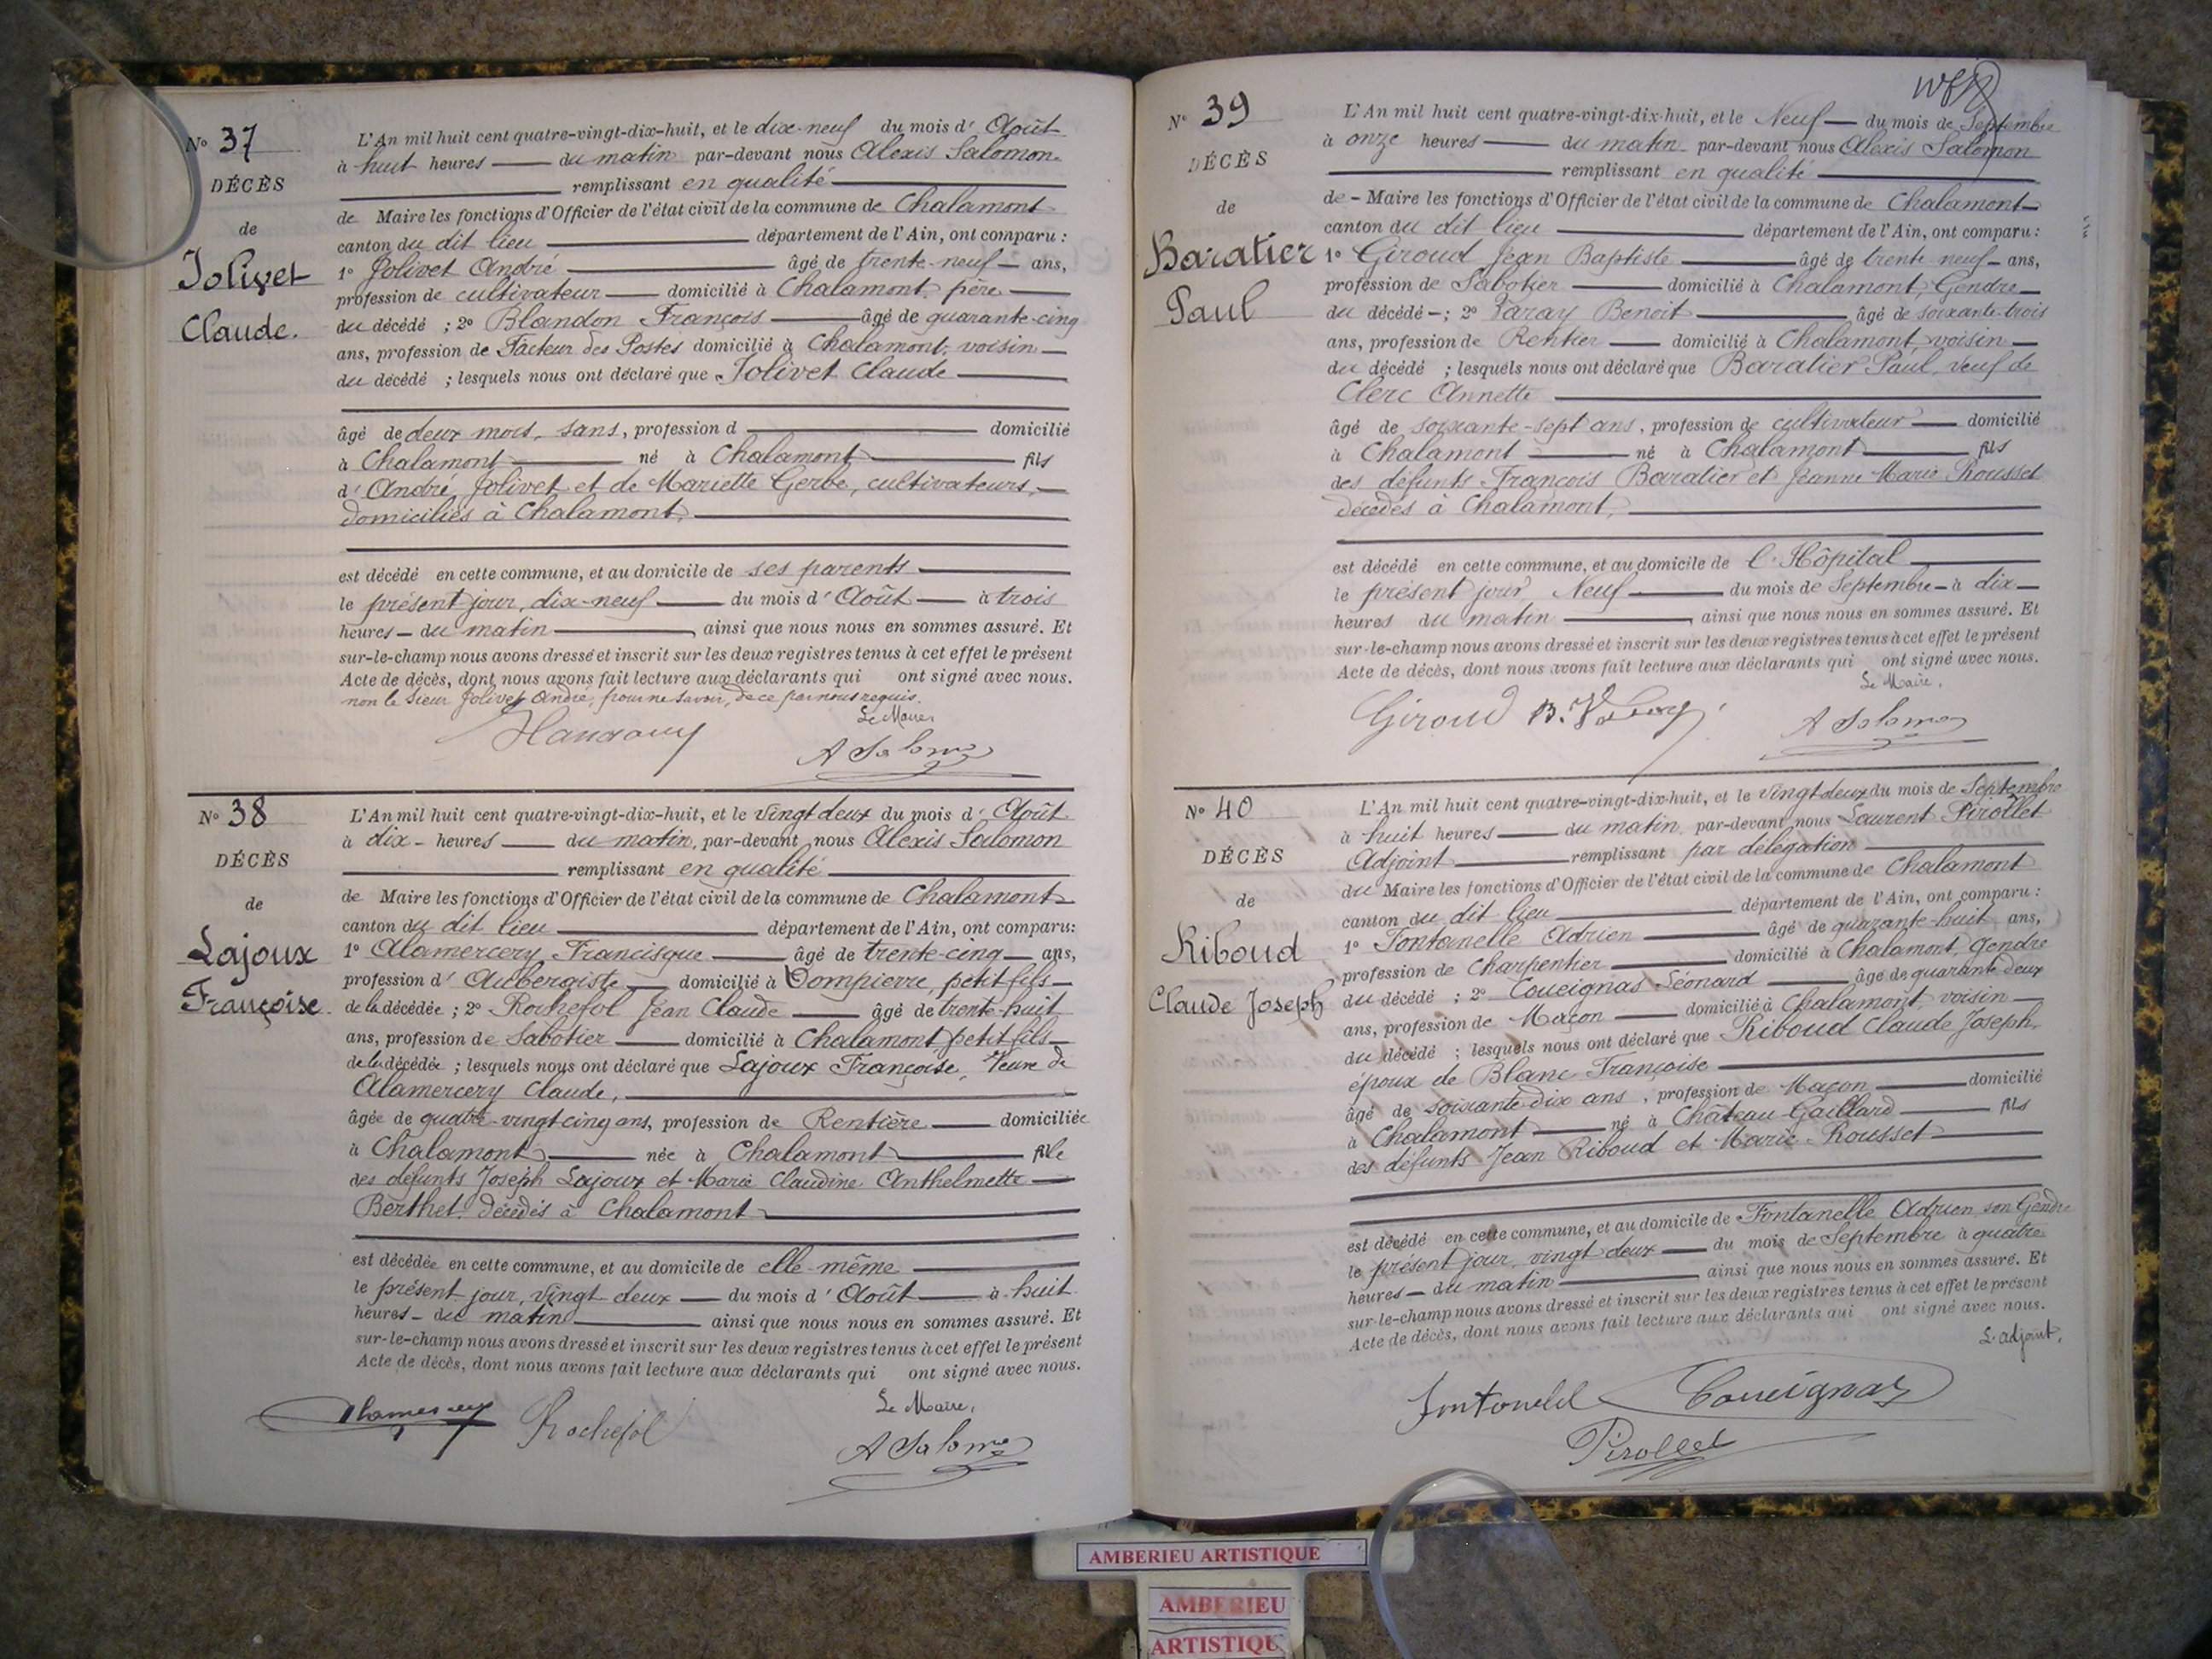 N° 37
DÉCÈS
de
Jolivet
Claude.
L'An mil huit cent quatre-vingt-dix-huit, et le dix-neuf du mois d' Août
à huit heures du matin par-devant nous Alexis Salomon
remplissant en qualité
de Maire les fonctions d'Officier de l'état civil de la commune de Chalamont
canton du dit lieu département de l'Ain, ont comparu :
1° Jolivet André âgé de trente-neuf ans,
profession de cultivateur domicilié à Chalamont, père
du décédé ; 2° Blandon François âgé de quarante-cinq
ans, profession de Facteur des Postes domicilié à Chalamont, voisin
du décédé ; lesquels nous ont déclaré que Jolivet Claude
âgé de deux mois, sans, profession d domicilié
à Chalamont né à Chalamont fils
d' André Jolivet et de Mariette Gerbe, cultivateurs,
domiciliés à Chalamont,
est décédé en cette commune, et au domicile de ses parents
le présent jour, dix-neuf du mois d' Août à trois
heures du matin, ainsi que nous nous en sommes assuré. Et
sur-le-champ nous avons dressé et inscrit sur les deux registres tenus à cet effet le présent
Acte de décès, dont nous avons fait lecture aux déclarants qui ont signé avec nous.
non le Sieur Jolivet André, pour ne savoir, de ce par nous requis.
Le Maire
A Salomon
N° 38
DÉCÈS
de
Lajoux
Françoise.
L'An mil huit cent quatre-vingt-dix-huit, et le Vingt deux du mois d' Août
à dix heures du matin, par-devant nous Alexis Salomon
remplissant en qualité
de Maire les fonctions d'Officier de l'état civil de la commune de Chalamont
canton du dit lieu département de l'Ain, ont comparu :
1° Alamercery Francisque âgé de trente-cinq ans,
profession d' Aubergiste domicilié à Dompierre, petit fils
de la décédée ; 2° Rochefol Jean Claude âgé de trente-huit
ans, profession de Sabotier domicilié à Chalamont petit fils
de la décédée ; lesquels nous ont déclaré que Lajoux Françoise, Veuve de
Alamercery Claude,
âgée de quatre-vingt-cinq ans, profession de Rentière domiciliée
à Chalamont née à Chalamont fille
des défunts Joseph Lajoux et Marie Claudine Anthelmette
Berthet décédés à Chalamont
est décédée en cette commune, et au domicile de elle-même
le présent jour, vingt deux du mois d' Août à huit
heures du matin ainsi que nous nous en sommes assuré. Et
sur-le-champ nous avons dressé et inscrit sur les deux registres tenus à cet effet le présent
Acte de décès, dont nous avons fait lecture aux déclarants qui ont signé avec nous.
Le Maire,
Alamercery Rochefol
A Salomon
N° 39
DÉCÈS
de
Baratier
Paul
L'An mil huit cent quatre-vingt-dix-huit, et le Neuf du mois de Septembre
à onze heures du matin par-devant nous Alexis Salomon
remplissant en qualité
de Maire les fonctions d'Officier de l'état civil de la commune de Chalamont
canton du dit lieu département de l'Ain, ont comparu :
1° Giroud Jean Baptiste âgé de trente neuf ans,
profession de Sabotier domicilié à Chalamont, Gendre
du décédé ; 2° Varay Benoit âgé de soixante-trois
ans, profession de Rentier domicilié à Chalamont, voisin
du décédé ; lesquels nous ont déclaré que Baratier Paul, veuf de
Clerc Annette
âgé de soixante-sept ans, profession de cultivateur domicilié
à Chalamont né à Chalamont fils
des défunts François Baratier et Jeanne Marie Rousset
décédés à Chalamont,
est décédé en cette commune, et au domicile de l'Hôpital
le présent jour, Neuf du mois de Septembre à dix
heures du matin, ainsi que nous nous en sommes assuré. Et
sur-le-champ nous avons dressé et inscrit sur les deux registres tenus à cet effet le présent
Acte de décès, dont nous avons fait lecture aux déclarants qui ont signé avec nous.
Le Maire,
Giroud B. Varay
A Salomon
N° 40
DÉCÈS
de
Riboud
Claude Joseph
L'An mil huit cent quatre-vingt-dix-huit, et le Vingt deux du mois de Septembre
à huit heures du matin par-devant nous Laurent Pirollet
Adjoint remplissant par délégation
du Maire les fonctions d'Officier de l'état civil de la commune de Chalamont
canton du dit lieu département de l'Ain, ont comparu :
1° Fontanelle Adrien âgé de quarante-huit ans,
profession de Charpentier domicilié à Chalamont, Gendre
du décédé ; 2° Coueignas Léonard âgé de quarante deux
ans, profession de Maçon domicilié à Chalamont, voisin
du décédé ; lesquels nous ont déclaré que Riboud Claude Joseph,
époux de Blanc Françoise
âgé de soixante dix ans, profession de Maçon domicilié
à Chalamont né à Château-Gaillard fils
des défunts Jean Riboud et Marie Rousset
est décédé en cette commune, et au domicile de Fontanelle Adrien son Gendre
le présent jour, vingt deux du mois de Septembre à quatre
heures du matin ainsi que nous nous en sommes assuré. Et
sur-le-champ nous avons dressé et inscrit sur les deux registres tenus à cet effet le présent
Acte de décès, dont nous avons fait lecture aux déclarants qui ont signé avec nous.
L'adjoint,
Fontanelle Coueignas
Pirollet
AMBERIEU ARTISTIQUE
AMBERIEU
ARTISTIQU